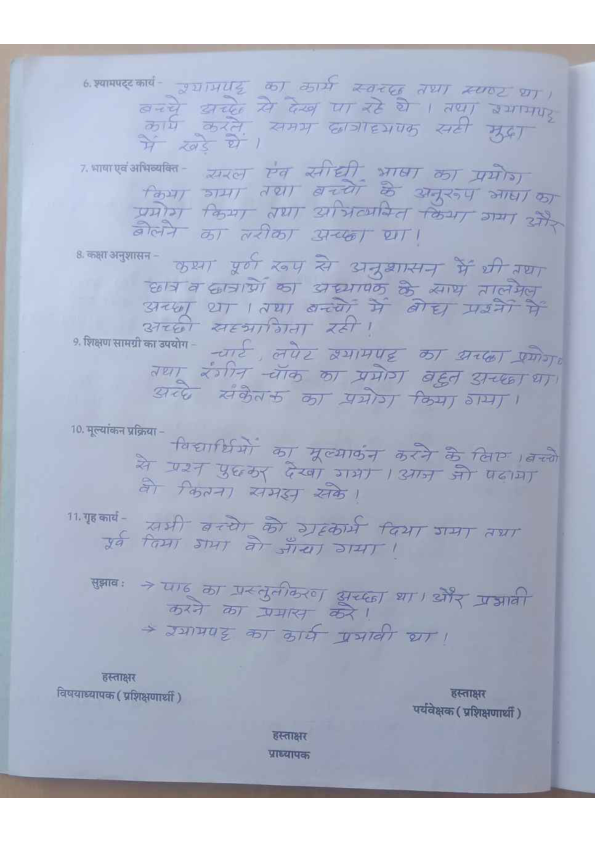 6. श्यामपट्ट कार्य - श्यामपट्ट का कार्य स्वच्छ तथा स्पष्ट था।
बच्चे अच्छे से देख पा रहे थे। तथा श्यामपट्ट
कार्य करते समय छात्राध्यापक सही मुद्रा
में खड़े थें।
7. भाषा एवं अभिव्यक्ति - सरल एंव सीधी भाषा का प्रयोग
किया गया तथा बच्चों के अनुरूप भाषा का
प्रयोग किया तथा अभिव्यक्ति किया गया और
बोलने का तरीका अच्छा था।
8. कक्षा अनुशासन - कक्षा पूर्ण रूप से अनुशासन में थी तथा
छात्र व छात्राओं का अध्यापक के साथ तालमेल
अच्छा था। तथा बच्चों में बोध प्रश्नों में
अच्छी सहभागिता रही।
9. शिक्षण सामग्री का उपयोग - चार्ट, लपेट श्यामपट्ट का अच्छा प्रयोग
तथा रंगीन चॉक का प्रयोग बहुत अच्छा था।
अच्छे संकेतक का प्रयोग किया गया।
10. मूल्यांकन प्रक्रिया - विद्यार्थियों का मूल्याकंन करने के लिए। बच्चो
से प्रश्न पुछकर देखा गया। आज जो पढाया
वो कितना समझ सके।
11. गृह कार्य - सभी बच्चो को ग्रहकार्य दिया गया तथा
पूर्व दिया गया वो जाँचा गया।
सुझाव : → पाठ का प्रस्तुतीकरण अच्छा था। और प्रभावी
करने का प्रयास करे।
→ श्यामपट्ट का कार्य प्रभावी था।
हस्ताक्षर
विषयाध्यापक ( प्रशिक्षणार्थी )
हस्ताक्षर
पर्यवेक्षक ( प्रशिक्षणार्थी )
हस्ताक्षर
प्राध्यापक